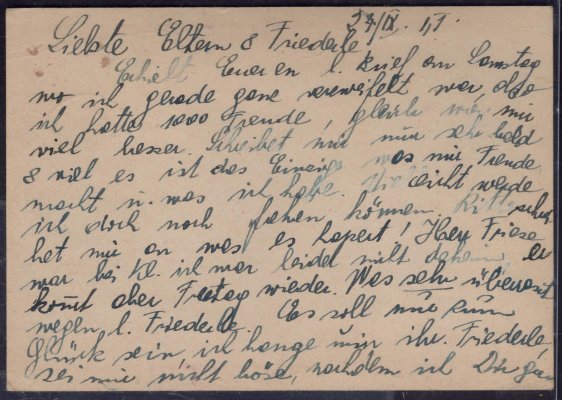 24/IX. 41.
Liebste Eltern & Friederle
Erhielt Eueren l. Brief am Samstag
wo ich gerade ganz verzweifelt war, also
ich hatte 1000 Freude, gleich war mir
viel besser. Schreibet mir nur sehr bald
& viel es ist das Einzige was mir Freude
macht u. was ich habe. Vielleicht werde
ich doch noch fahren können. Bitte schr
bet mir an was es hapert! Herr Friese
war bei Kl. ich war leider nicht daheim, er
kommt aber Freitag wieder. Was sehr
wegen l. Friederle. Es soll nur zum
Glück sein, ich hange an ihr. Friederle,
sei mir nicht böse, nachdem ich Dir